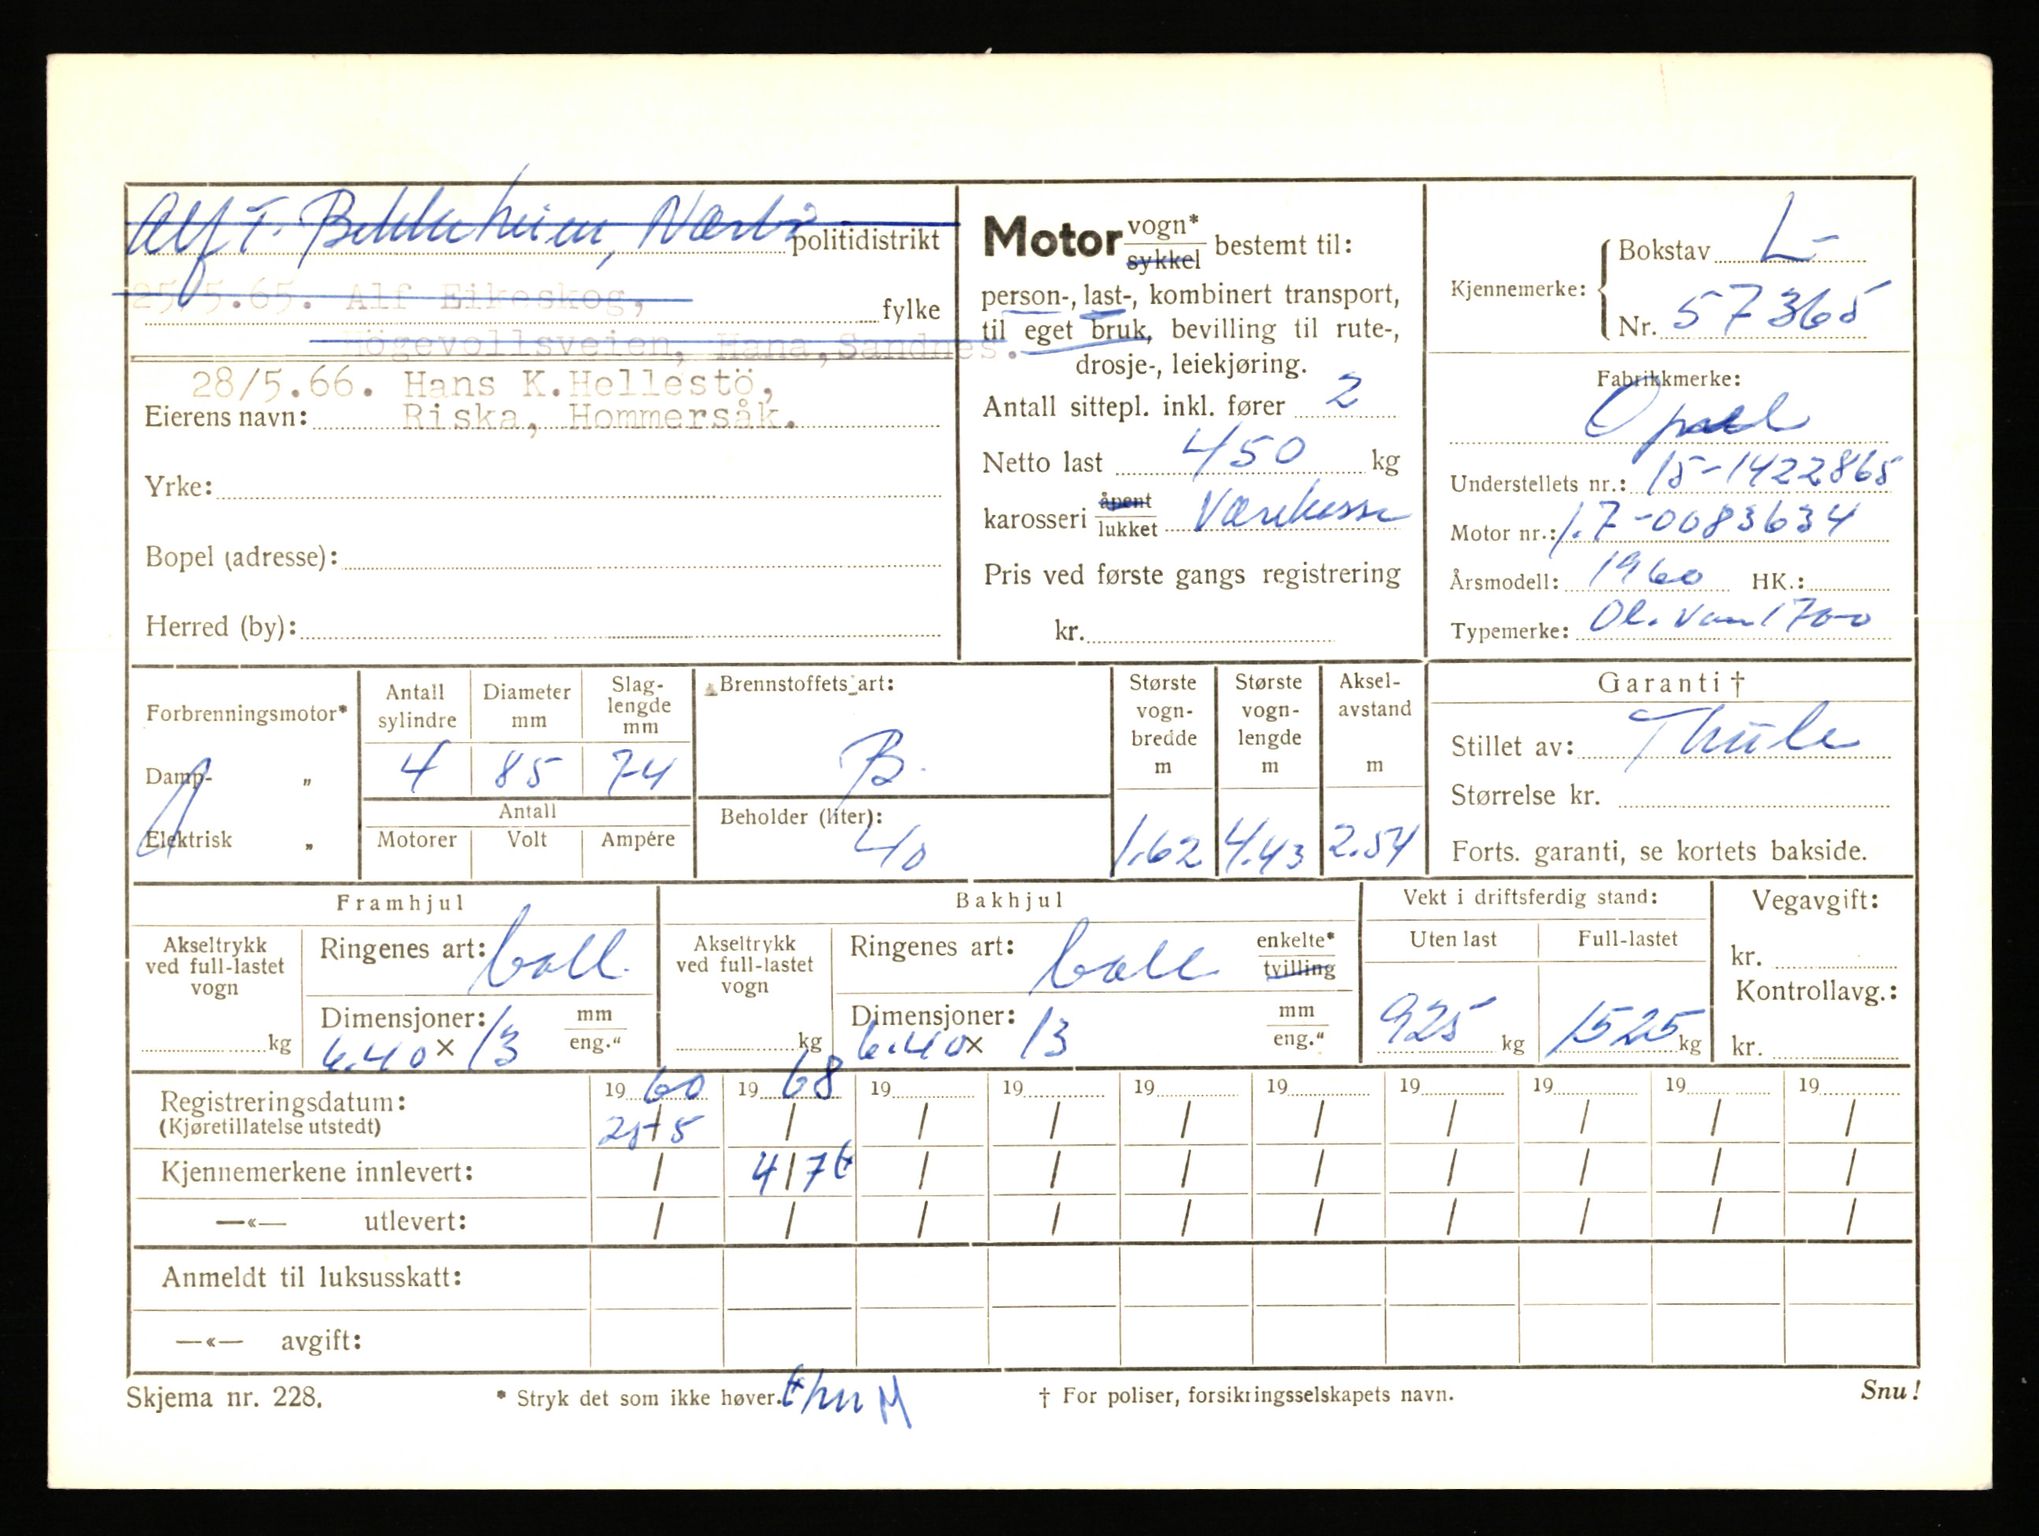 Alf T. Bekkeheien, Nærbø politidistrikt
25/5.65. Alf Eikeskog, fylke
Högevollsveien, Hana, Sandnes.
28/5.66. Hans K. Hellestö,
Eierens navn: Riska, Hommersåk.
Yrke:
Bopel (adresse):
Herred (by):
Motor vogn* sykkel bestemt til:
person-, last-, kombinert transport,
til eget bruk, bevilling til rute-,
drosje-, leiekjøring.
Antall sittepl. inkl. fører 2
Netto last 450 kg
karosseri åpent lukket Varekasse
Pris ved første gangs registrering
kr.
Kjennemerke: Bokstav L-
Nr. 57365
Fabrikkmerke:
Opel
Understellets nr.: 15-1422865
Motor nr.: 1.7-0083634
Årsmodell: 1960 HK.:
Typemerke: Ol. Van 1700
Forbrenningsmotor*
Damp- „
Elektrisk „
Antall sylindre 4
Diameter mm 85
Slag-lengde mm 74
Antall
Motorer Volt Ampére
Brennstoffets art:
B.
Beholder (liter):
40
Største vogn-bredde m 1.62
Største vogn-lengde m 4.43
Aksel-avstand m 2.54
Garanti †
Stillet av: Thule
Størrelse kr.
Forts. garanti, se kortets bakside.
Framhjul
Akseltrykk ved full-lastet vogn
kg
Ringenes art: ball.
Dimensjoner: mm eng."
6.40 x 13
Bakhjul
Akseltrykk ved full-lastet vogn
kg
Ringenes art: ball enkelte* tvilling
Dimensjoner: mm eng."
6.40 x 13
Vekt i driftsferdig stand:
Uten last Full-lastet
925 kg 1525 kg
Vegavgift:
kr.
Kontrollavg.:
kr.
19 60 19 68 19 19 19 19 19 19 19 19
Registreringsdatum: 25/5 / / / / / / / / /
(Kjøretillatelse utstedt)
Kjennemerkene innlevert: / 4/7 / / / / / / / /
—«— utlevert: / / / / / / / / / /
Anmeldt til luksusskatt:
—«— avgift:
Skjema nr. 228. * Stryk det som ikke høver. † For poliser, forsikringsselskapets navn. Snu!